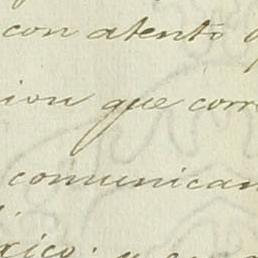 con atento
ion que corr
comunican
xico. y